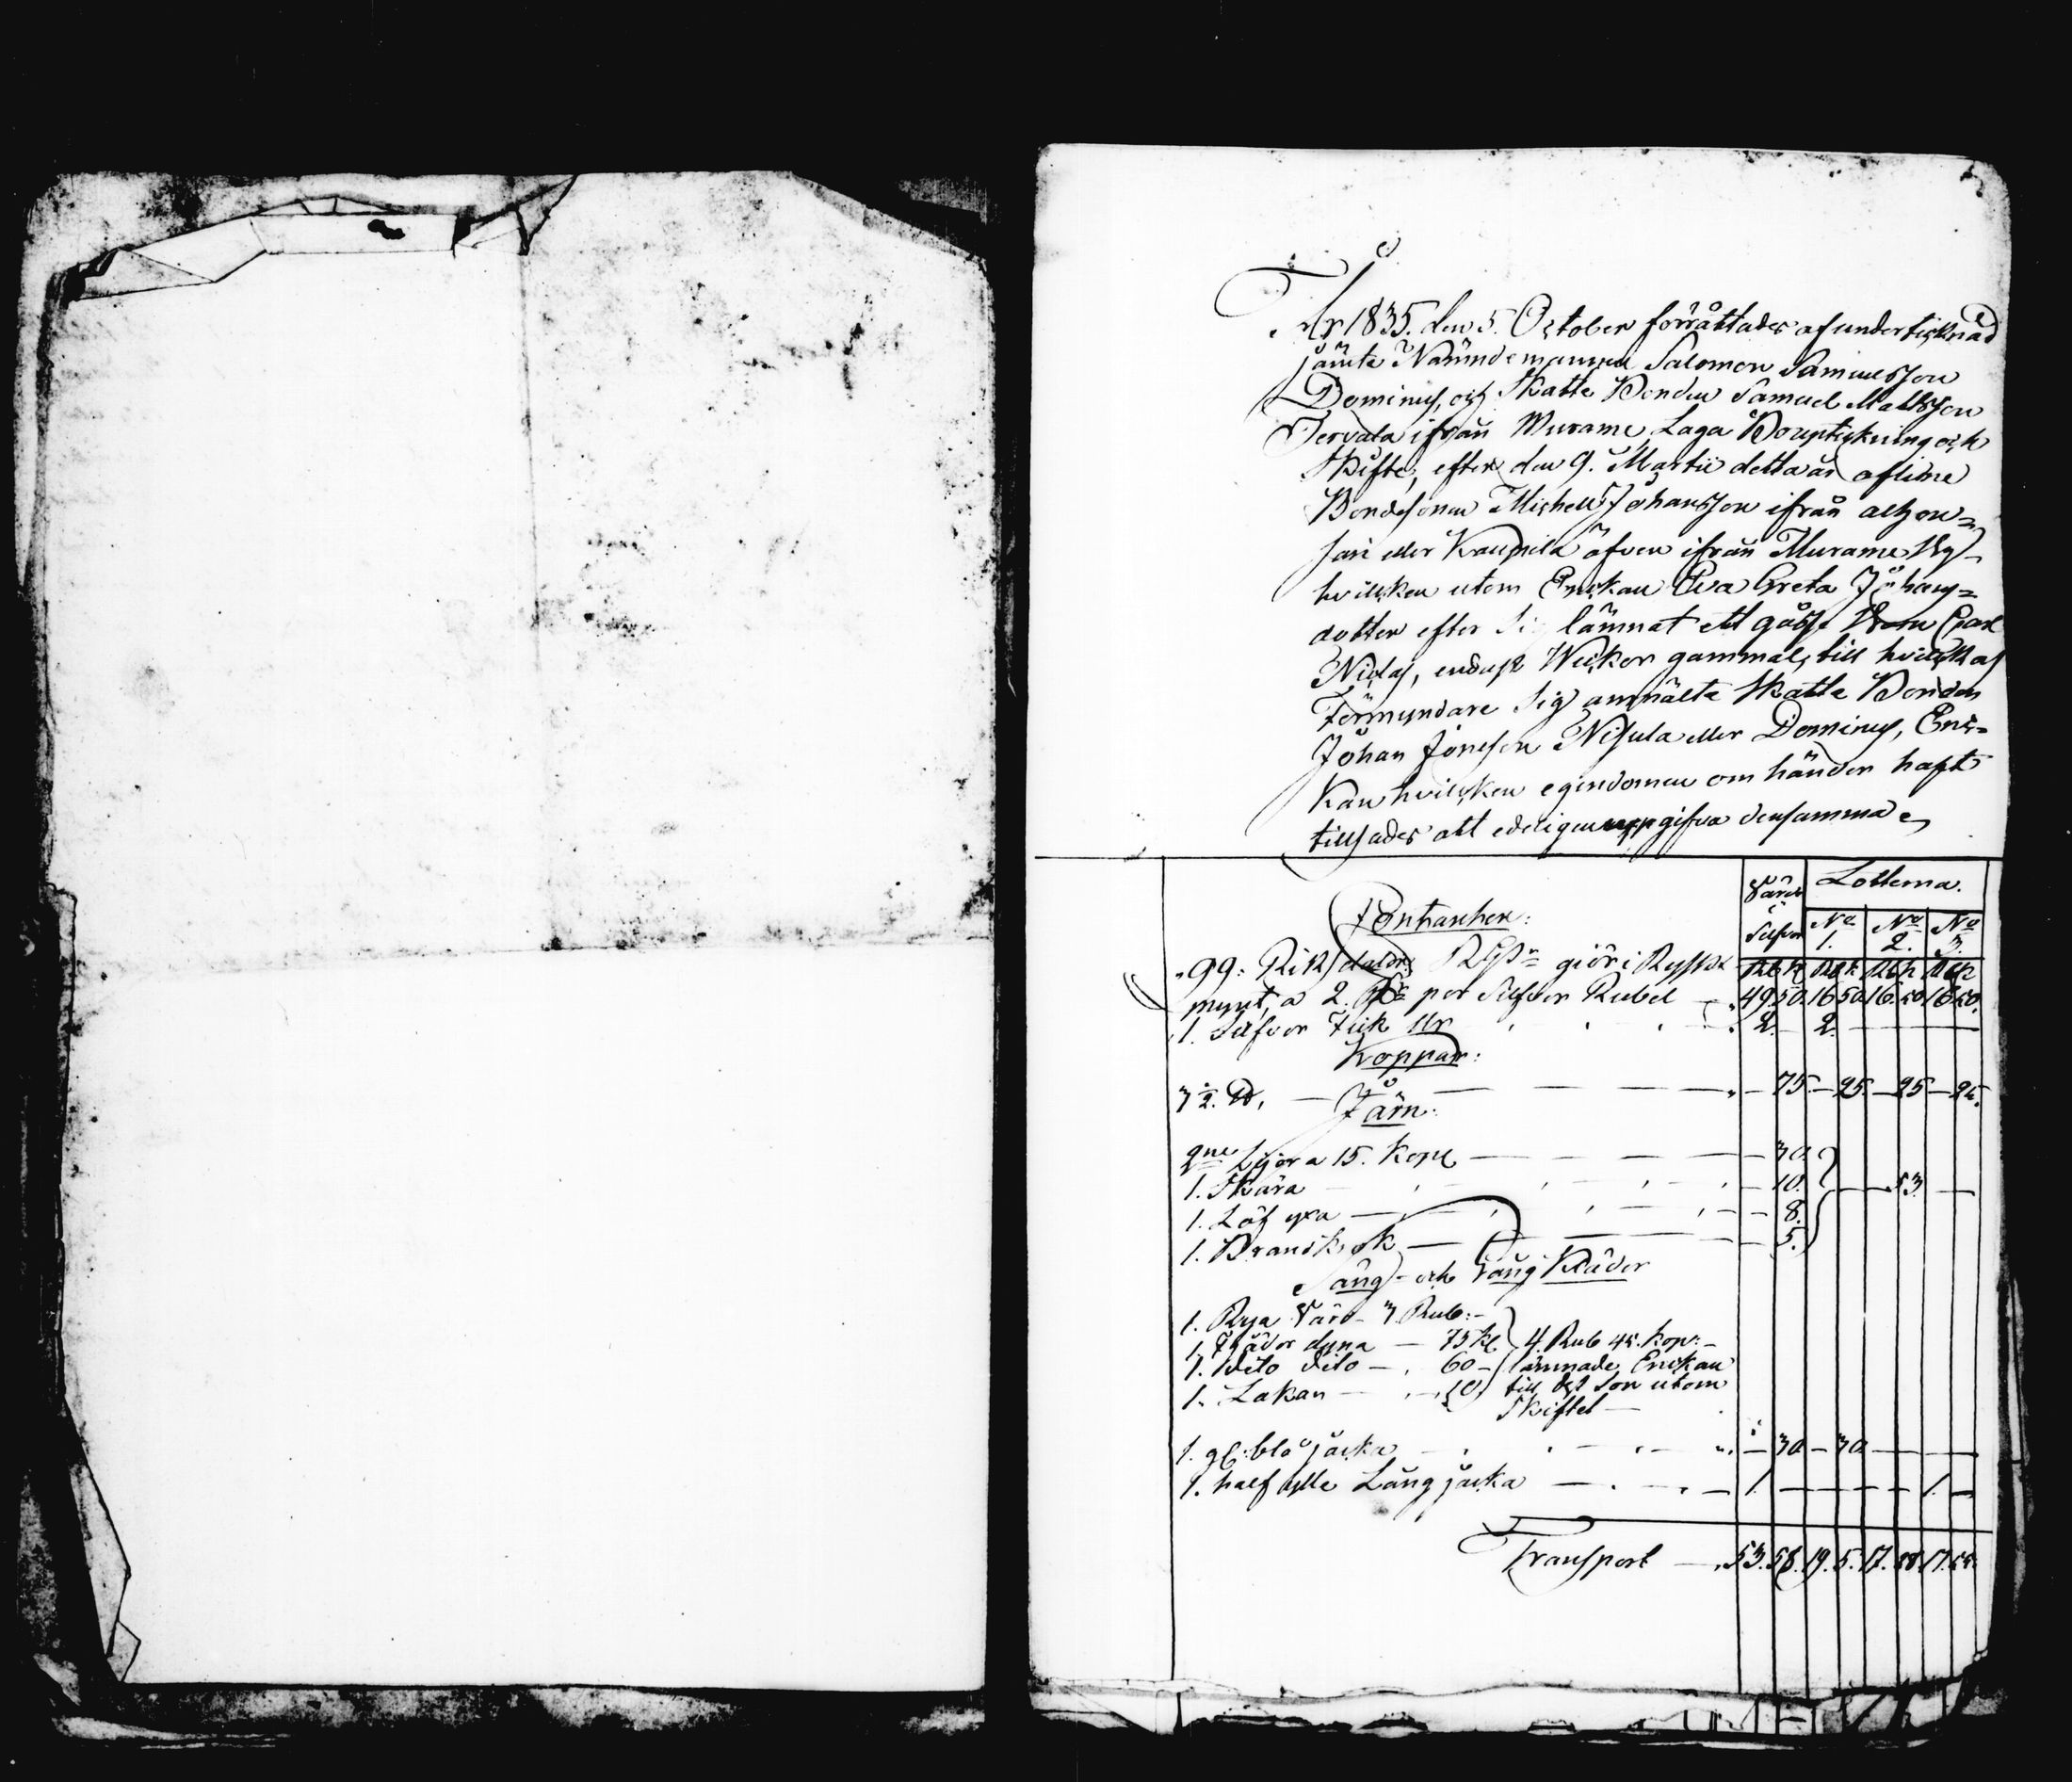 År 1835. den 5. October förrättades af undertecknad
jämte Nämndemannen Salomon Samuelsson
Dominus, och Skatte Bonden Samuel Mattsson
Jervala ifrån Murame, Laga Bouptekning och
Skifte, efter den 9. Martii detta år aflidne
Bondesonen Michell Johansson ifrån
eller Kaupila äfven ifrån Murame By
hvilken utom Enckan Eva Greta Johans=
dotter efter Sig lämnat ett gåsse Barn Carl
Niclas, endast Weckor gammal, till hvilkets
Förmyndare Sig anmälte Skatte Bonden
Johan Jönsson Nisula eller Dominus, Enc=
kan hvilken egendomen om händer haft
tillsades att edeligen uppgifva densamma
Värde i Silfver Lotterna.
No 1. No 2. No 3.
Contanter:
99: Riksdaler RGs giör i Rysskt Rub k Rub k Rub k Rub k
mynt, a 2. Rd per Silfver Rubel 49 50. 16 50. 16. 50. 16 50.
1. Silfver Fick Ur 2. 2.
Koppar:
3 1/2. ℔. 75. 25. 25 25.
Järn:
2ne Lijor a 15. Kop 30.
1. Skära 10. 53
1. Löf yxa 8.
1. Brandkrok 5.
Säng- och Gång Kläder
1. Rya Värd 3 Rub:
1. Fjäder dyna 75 k 4 Rub 45. kop:
1. dito dito 60 lämnade Enckan
1. Lakan 10 till dess Son utom
Skiftet
1. gl: blå jacka 30 30
1. half ylle Lång jacka 1. 1.
Transport 53. 58. 19. 5. 17. 28. 17. 25.